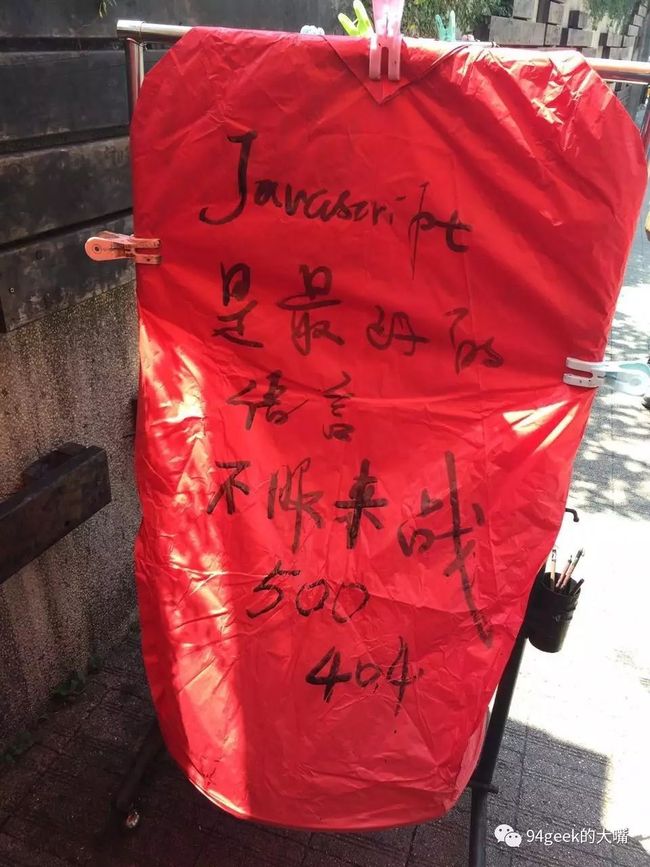 Javascript
是最好的
语言
不服来战
500
404
94geek的大嘴